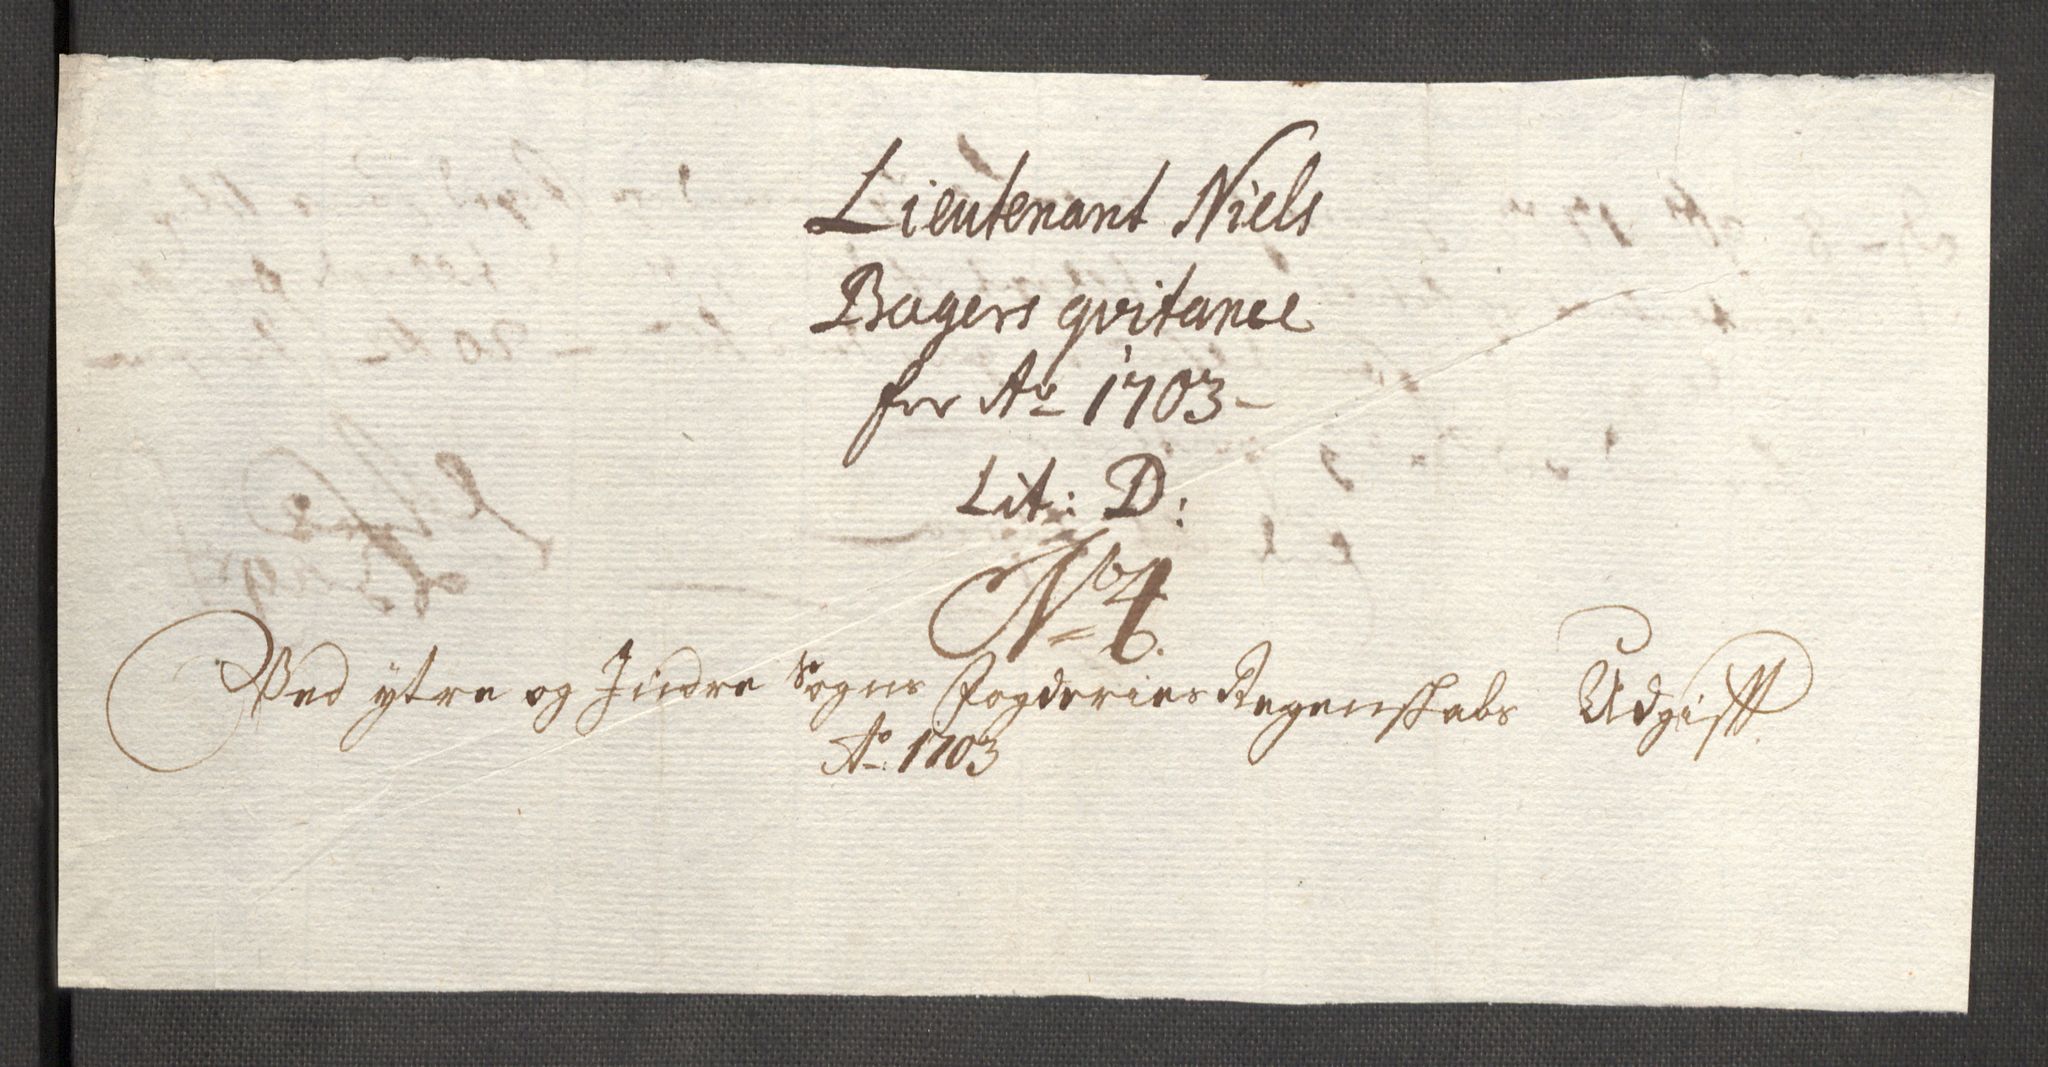 Lieutenant Niels
Bagers qvitance
for Ao 1703
Lit: D:
No 4.
Ved ytre og Indre Sogns fogderies Regenskabs Udgift
Ao: 1703